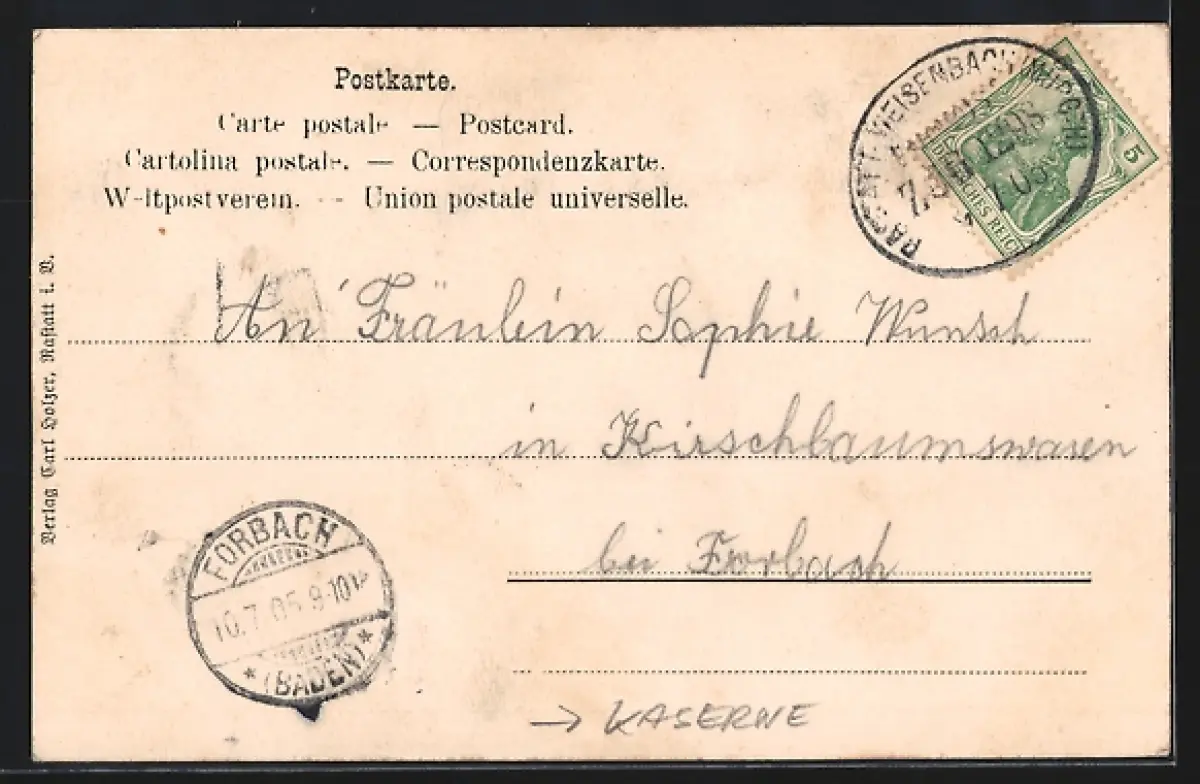 Postkarte.
Carte postale — Postcard.
Cartolina postale. — Correspondenzkarte.
Weltpostverein. — Union postale universelle.
RASTATT-WEISENBACH (MURGTH)
5
DEUTSCHES REICH
Verlag Carl Holzer, Rastatt i. B.
An Fräulein Sophie Wunsch
in Kirschbaumswasen
bei Forbach
FORBACH
10.7.05.9-10V
* (BADEN) *
→ KASERNE